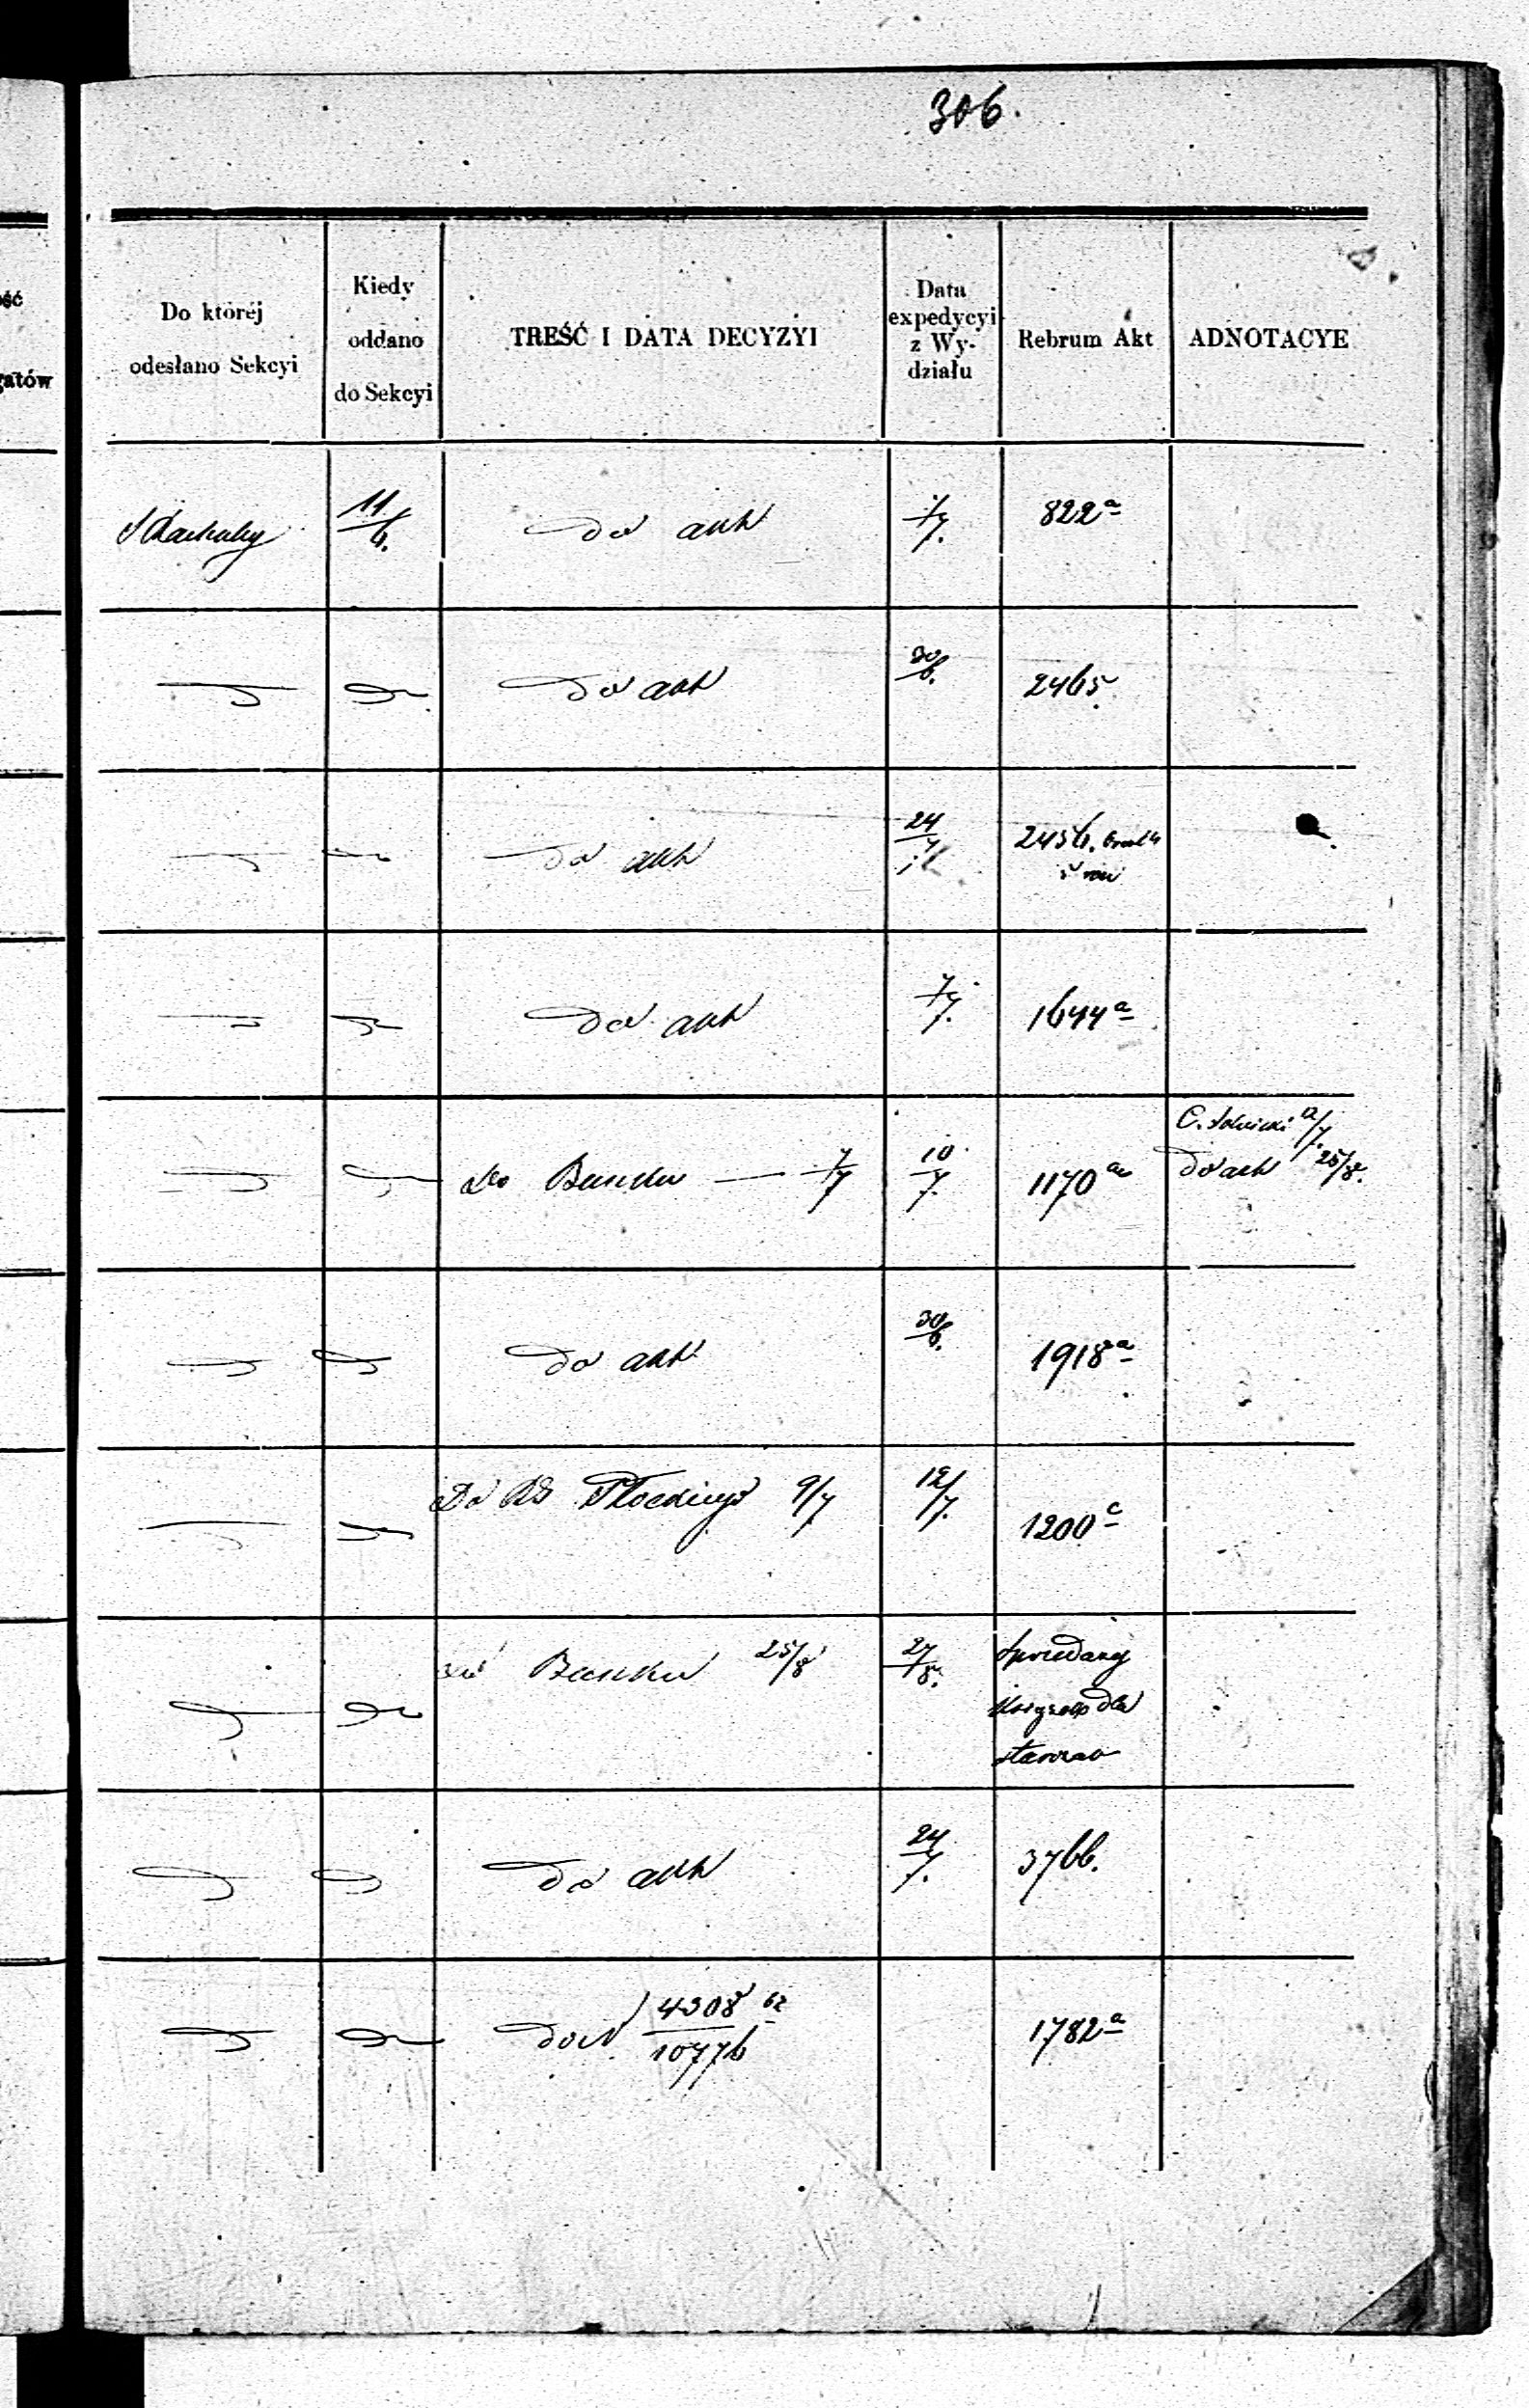 306.
ść
gatów
Do któréj
odesłano Sekcyi
Kiedy
oddano
do Sekcyi
TREŚĆ I DATA DECYZYI
Data
expedycyi
z Wy-
działu
Rebrum Akt
ADNOTACYE
11/6. Do akt 7/7. 822 a
Do akt 30/6. 2465
Do akt 24/7 2456.
Do akt 7/7. 1644 a
Do Banku — 7/7 10/7. 1170 a
12/7.
Do akt 25/8.
Do akt 30/6. 1918 a
Do Płockiego 9/7 12/7. 1200 c
Banku 25/8 27/8. Sprzedaży
dla
Do akt 24/7. 3766.
Do N 4308 62 / 10776 1782 a